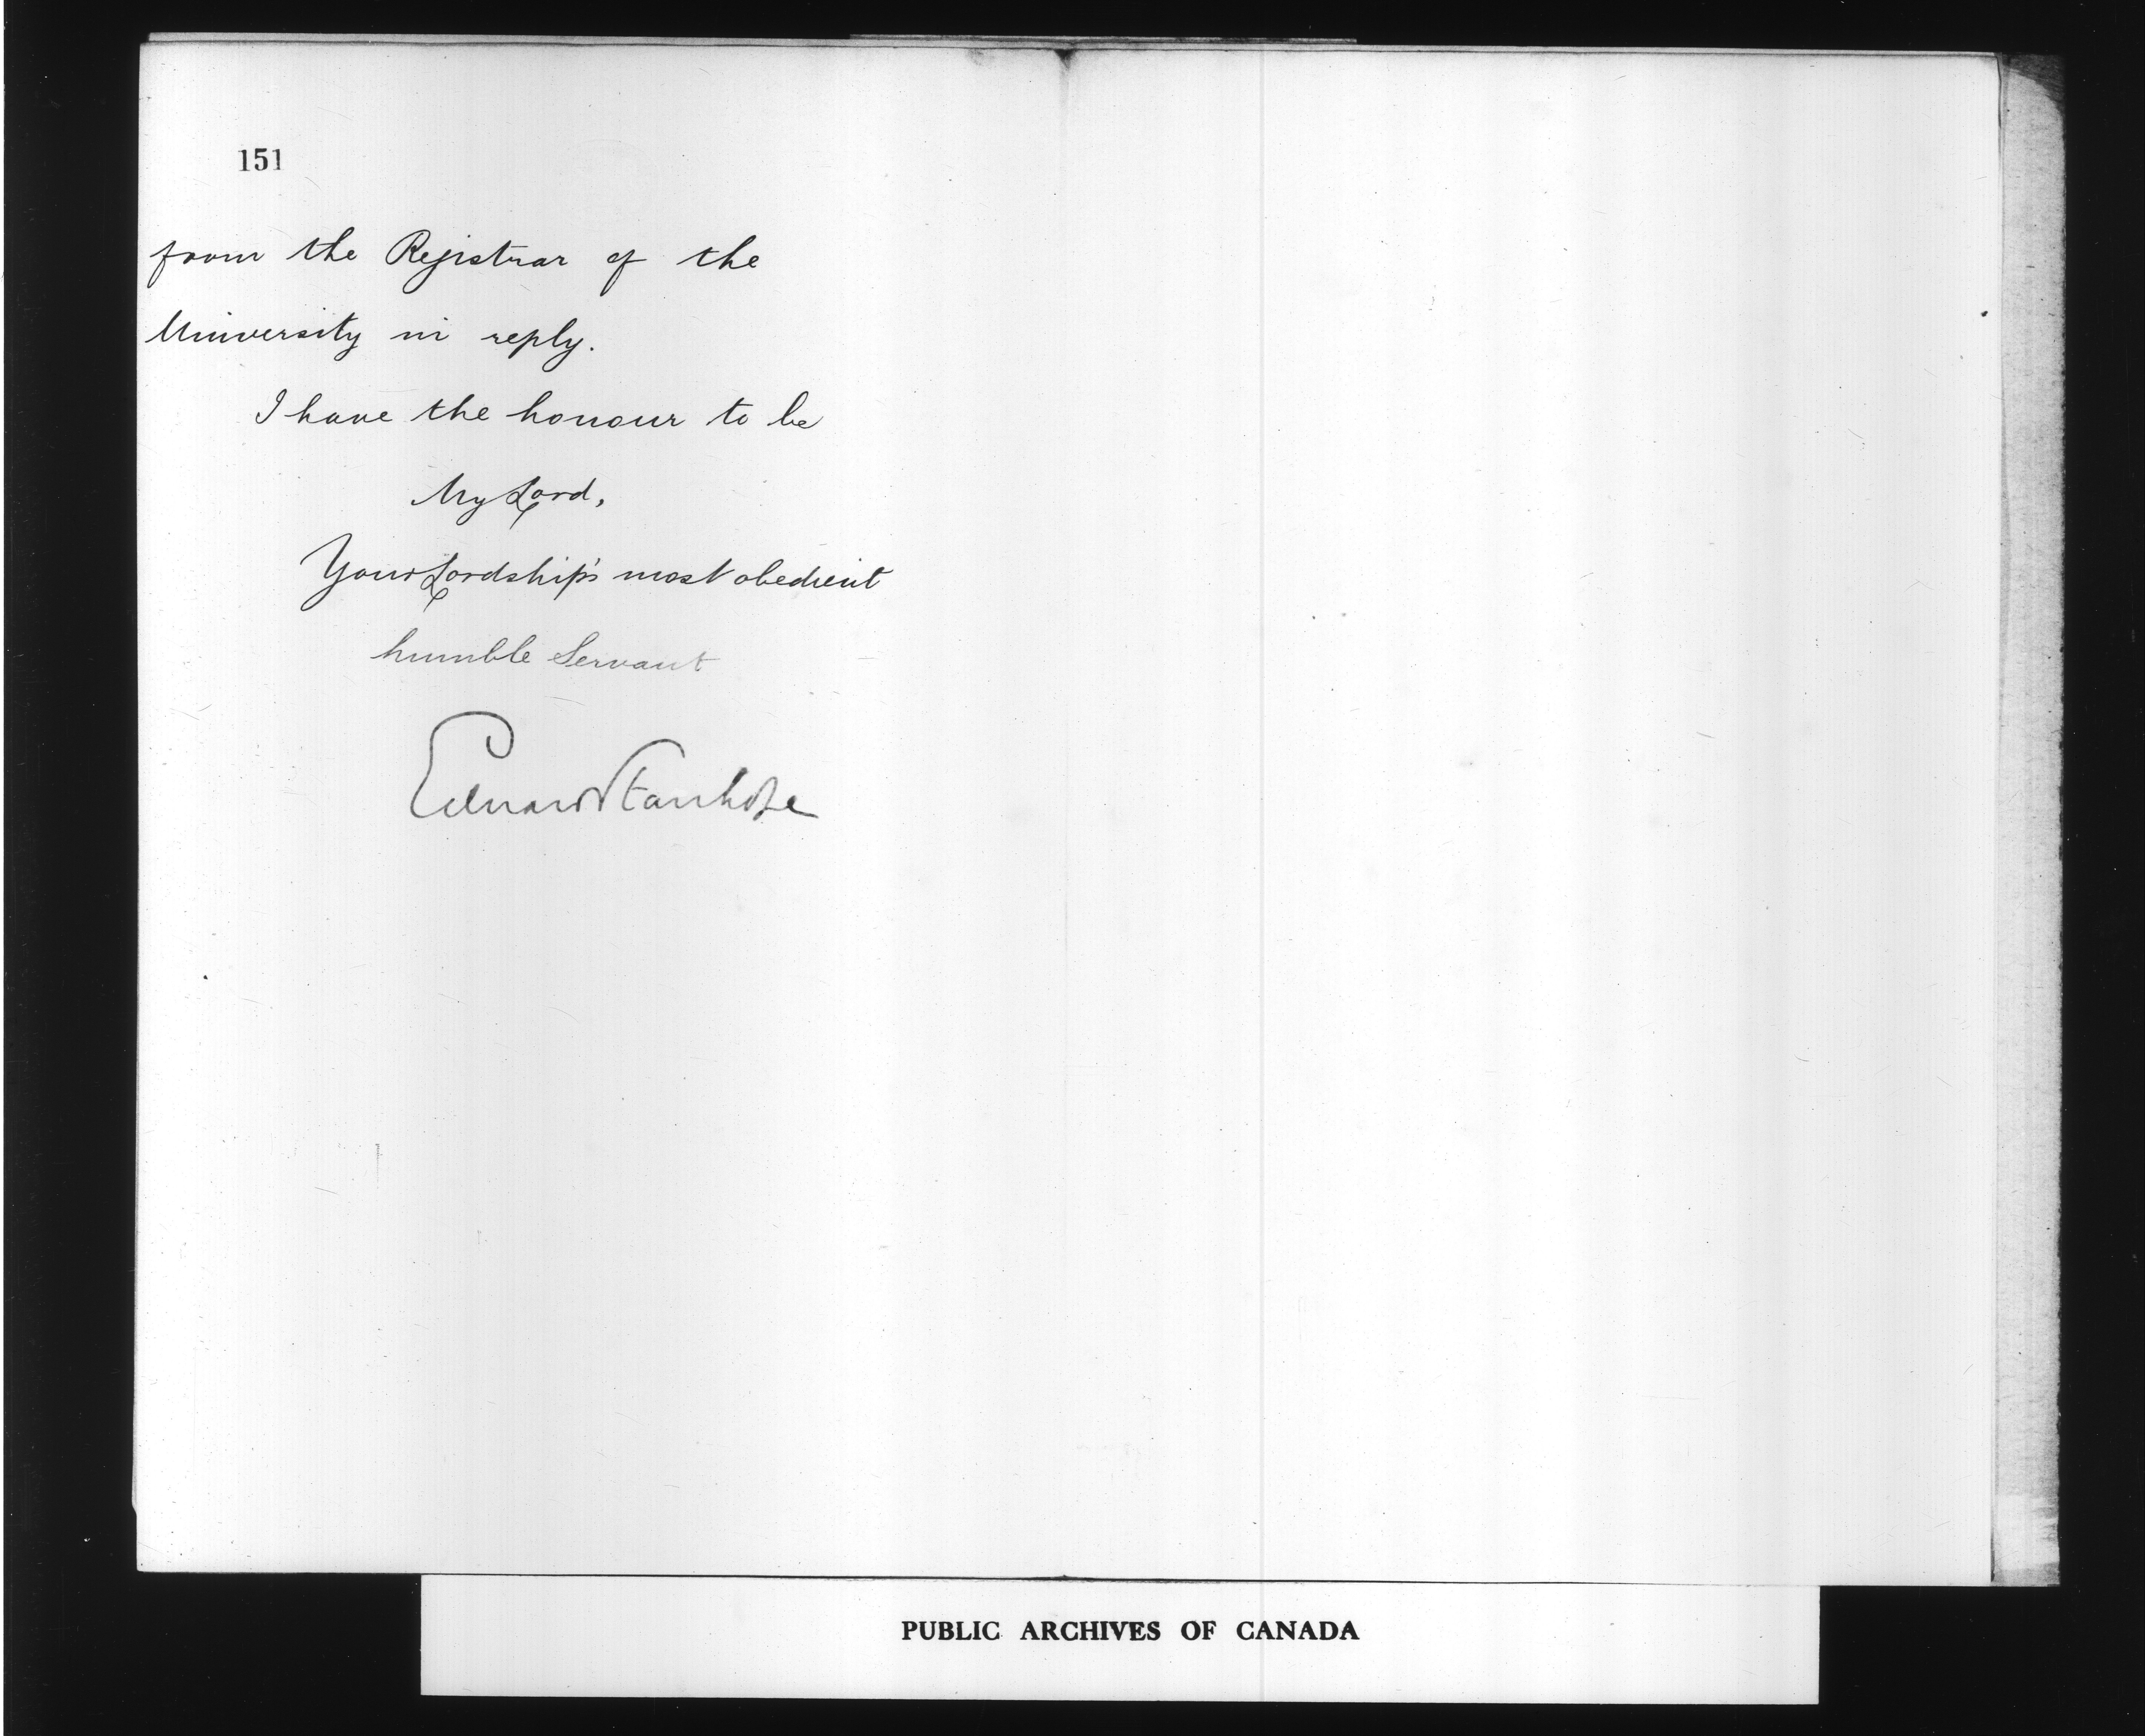 151
from the Registrar of the
University in reply.
I have the honour to be
My Lord,
Your Lordship's most obedient
humble Servant
Edward Stanhope
PUBLIC ARCHIVES OF CANADA